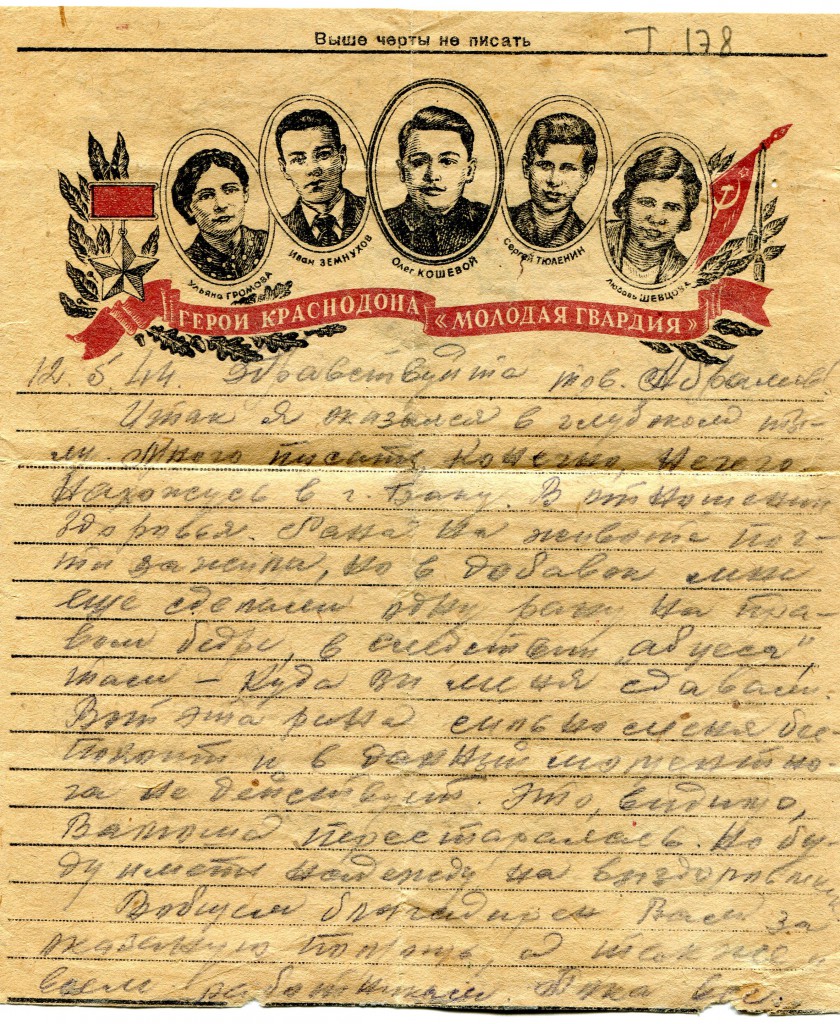 Выше черты не писать
Т 178
Ульяна ГРОМОВА
Иван ЗЕМНУХОВ
Олег КОШЕВОЙ
Сергей ТЮЛЕНИН
Любовь ШЕВЦОВА
ГЕРОИ КРАСНОДОНА «МОЛОДАЯ ГВАРДИЯ»
12.5.44. Здравствуйте тов. Абрамов
Итак я оказался в глубоком ты-
лу. Много писать конечно нечего
Нахожусь в г. Баку. В отношении
здоровья. Рана на животе поч-
ти зажила, но в добавок мне
еще сделали одну рану на пра-
вом бедре, в следствии "абцеса"
там - куда Вы меня сдавали.
Вот эта рана сильно меня бес
покоит и в данный момент но
га не действует. Это, видимо,
перестаралась. Но бу-
ду иметь надежду на
Вобщем благодарен Вам за
оказанную помощь, а также и
всем работникам. Пока все.